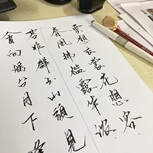 雲想衣裳花想容
春風拂檻露華濃
若非群玉山頭見
會向瑤台月下逢